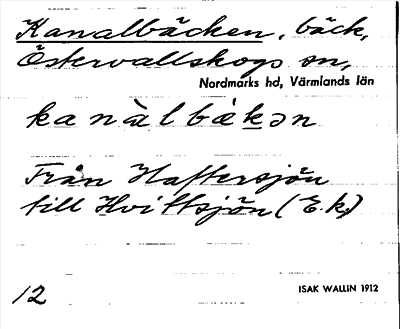 Kanalbäcken, bäck,
Östervallskogs sn,
Nordmarks hd, Värmlands län
kanàlbákən
Från Haftersjön
till Hvittsjön (E.k.)
12
ISAK WALLIN 1912